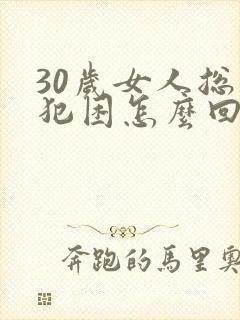 30歲女人总
犯困怎麼回
奔跑的馬里奧